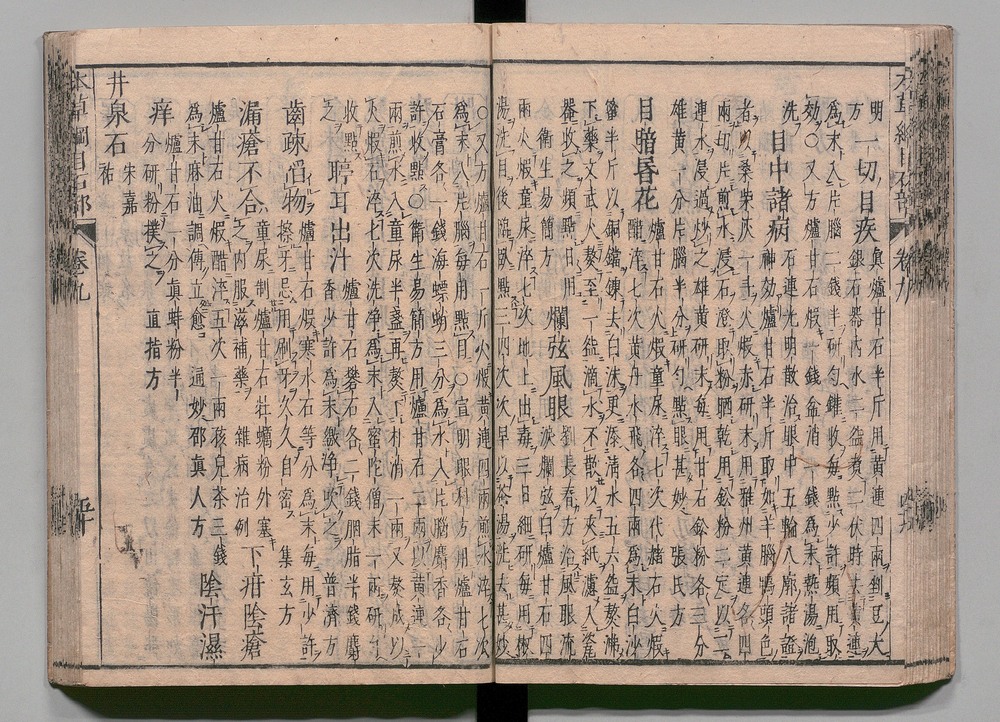 明 一切目疾 真爐甘石半斤用黃連四兩剉豆大
方 銀石器内水二盌煮二伏時去黃連
為末入片腦二錢半研勻罐收每點少許頻用取
効〇又方爐甘石煅一錢盆消一錢為末熱湯泡
洗 目中諸病 石連光明散治眼中五輪八廓諸證
神効爐甘石半斤取如羊腦鴨頭色
者以桑柴灰一斗火煅赤研末用雅州黃連各四
兩切片煎水浸石澄取粉晒乾用鉛粉二定以二
連水浸過炒之雄黃研末每用甘石鉛粉各三分
雄黃一分片腦半分研勻點眼甚妙 張氏方
目暗昏花 爐甘石火煅童尿淬七次代赭石火煅
醋淬七次黃丹水飛各四兩為末白沙
蜜半斤以銅鐺煉去白沫更添清水五六盌熬沸
下藥文武火熬至一盌滴水不散以夾紙濾入瓷
器收之頻點日用 爛弦風眼 劉長春方治風眼流
衛生易簡方 淚爛弦白爐甘石四
兩火煅童尿淬七次地上出毒三日細研每用椒
湯洗目後臨臥點三四次次早以茶湯洗去甚妙
〇又方爐甘石一斤火煅黃連四兩煎水淬七次
為末入片腦每用點目〇宣明眼科方用爐甘石
石膏各一錢海螵蛸三分為末入片腦麝香各少
許收點〇衛生易簡方用爐甘石二兩以黃連一
兩煎水入童尿半盞再熬下朴消一兩又熬成以
火煅石淬七次洗净為末入蜜陀僧末一兩研勻
收點之 聤耳出汁 爐甘石礬石各二錢胭脂半錢麝
香少許為末繳净吹之 普濟方
齒疎陷物 爐甘石煅寒水石等分為末每用少許
擦牙忌用刷牙久久自密 集玄方
漏瘡不合 童尿制爐甘石牡蠣粉外塞
之内服滋補藥 雜病治例 下疳陰瘡
爐甘石火煅醋淬五次一兩孩兒茶三錢
為末麻油調傅立愈 通妙邵真人方 陰汗濕
痒 爐甘石一分真蚌粉半
分研粉撲之 直指方
井泉石 朱嘉
祐